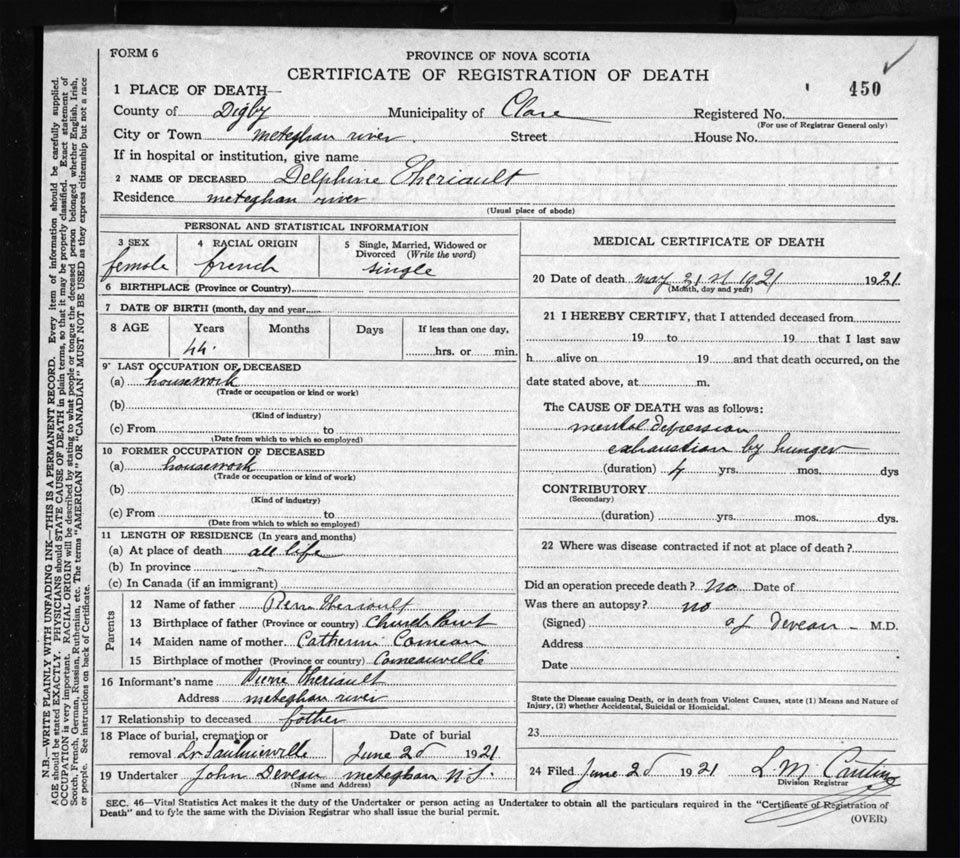 FORM 6
PROVINCE OF NOVA SCOTIA
450
CERTIFICATE OF REGISTRATION OF DEATH
1 PLACE OF DEATH—
County of Digby Municipality of Clare Registered No.
(For use of Registrar General only)
City or Town meteghan river. Street House No.
If in hospital or institution, give name
2 NAME OF DECEASED Delphine Theriault
Residence meteghan river
(Usual place of abode)
PERSONAL AND STATISTICAL INFORMATION
3 SEX 4 RACIAL ORIGIN 5 Single, Married, Widowed or Divorced (Write the word)
female french single
6 BIRTHPLACE (Province or Country)
7 DATE OF BIRTH (month, day and year)
8 AGE Years Months Days If less than one day,
44. hrs. or min.
9 LAST OCCUPATION OF DECEASED
(a) housework
(Trade or occupation or kind or work)
(b)
(Kind of industry)
(c) From to
(Date from which to which so employed)
10 FORMER OCCUPATION OF DECEASED
(a) housework
(Trade or occupation or kind of work)
(b)
(Kind of industry)
(c) From to
(Date from which to which so employed)
11 LENGTH OF RESIDENCE (In years and months)
(a) At place of death all life
(b) In province
(c) In Canada (if an immigrant)
Parents
12 Name of father Pierre Theriault
13 Birthplace of father (Province or country) Church Point
14 Maiden name of mother Catherine Comeau
15 Birthplace of mother (Province or country) Comeauville
16 Informant's name Pierre Theriault
Address meteghan river
17 Relationship to deceased father
18 Place of burial, cremation or Date of burial
removal Lr Saulnierville June 2d 1921
19 Undertaker John Deveau meteghan N.S.
(Name and Address)
MEDICAL CERTIFICATE OF DEATH
20 Date of death may 21st 1921 1921
(Month, day and year)
21 I HEREBY CERTIFY, that I attended deceased from
19 to 19 that I last saw
h alive on 19 and that death occurred, on the
date stated above, at m.
The CAUSE OF DEATH was as follows:
mental depression
exhaustion by hunger
(duration) 4 yrs. mos. dys
CONTRIBUTORY
(Secondary)
(duration) yrs. mos. dys.
22 Where was disease contracted if not at place of death?
Did an operation precede death? no Date of
Was there an autopsy? no
(Signed) Deveau M.D.
Address
Date
State the Disease causing Death, or in death from Violent Causes, state (1) Means and Nature of
Injury, (2) whether Accidental, Suicidal or Homicidal.
23
24 Filed June 2d 1921 L. M.
Division Registrar
SEC. 46—Vital Statistics Act makes it the duty of the Undertaker or person acting as Undertaker to obtain all the particulars required in the "Certificate of Registration of
Death" and to fyle the same with the Division Registrar who shall issue the burial permit.
(OVER)
N.B.—WRITE PLAINLY WITH UNFADING INK—THIS IS A PERMANENT RECORD. Every item of information should be carefully supplied.
AGE should be stated EXACTLY. PHYSICIANS should STATE CAUSE OF DEATH in plain terms, so that it may be properly classified. Exact statement of
OCCUPATION is very important. RACIAL ORIGIN will be described by stating to what people or tongue the deceased person belonged whether English, Irish,
Scotch, French, German, Russian, Ruthenian, etc. The terms "AMERICAN" OR "CANADIAN" MUST NOT BE USED as they express citizenship but not a race
or people. See instructions on back of Certificate.